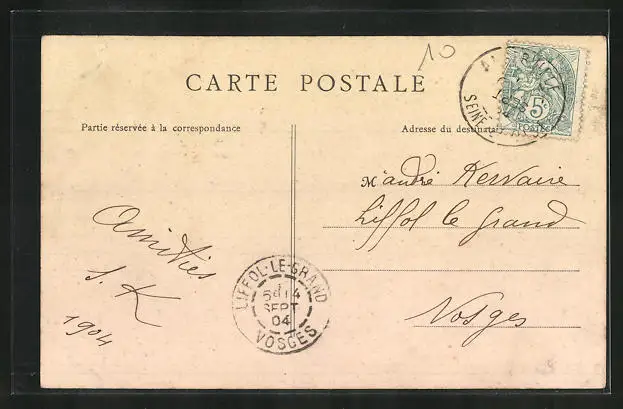 10
CARTE POSTALE
Partie réservée à la correspondance
Adresse du destinataire
5c
POSTES
SEINE
M André Kervaire
Liffol le grand
Vosges
Amitiés
S. K
1904
LIFFOL-LE-GRAND
SEPT
04
VOSGES